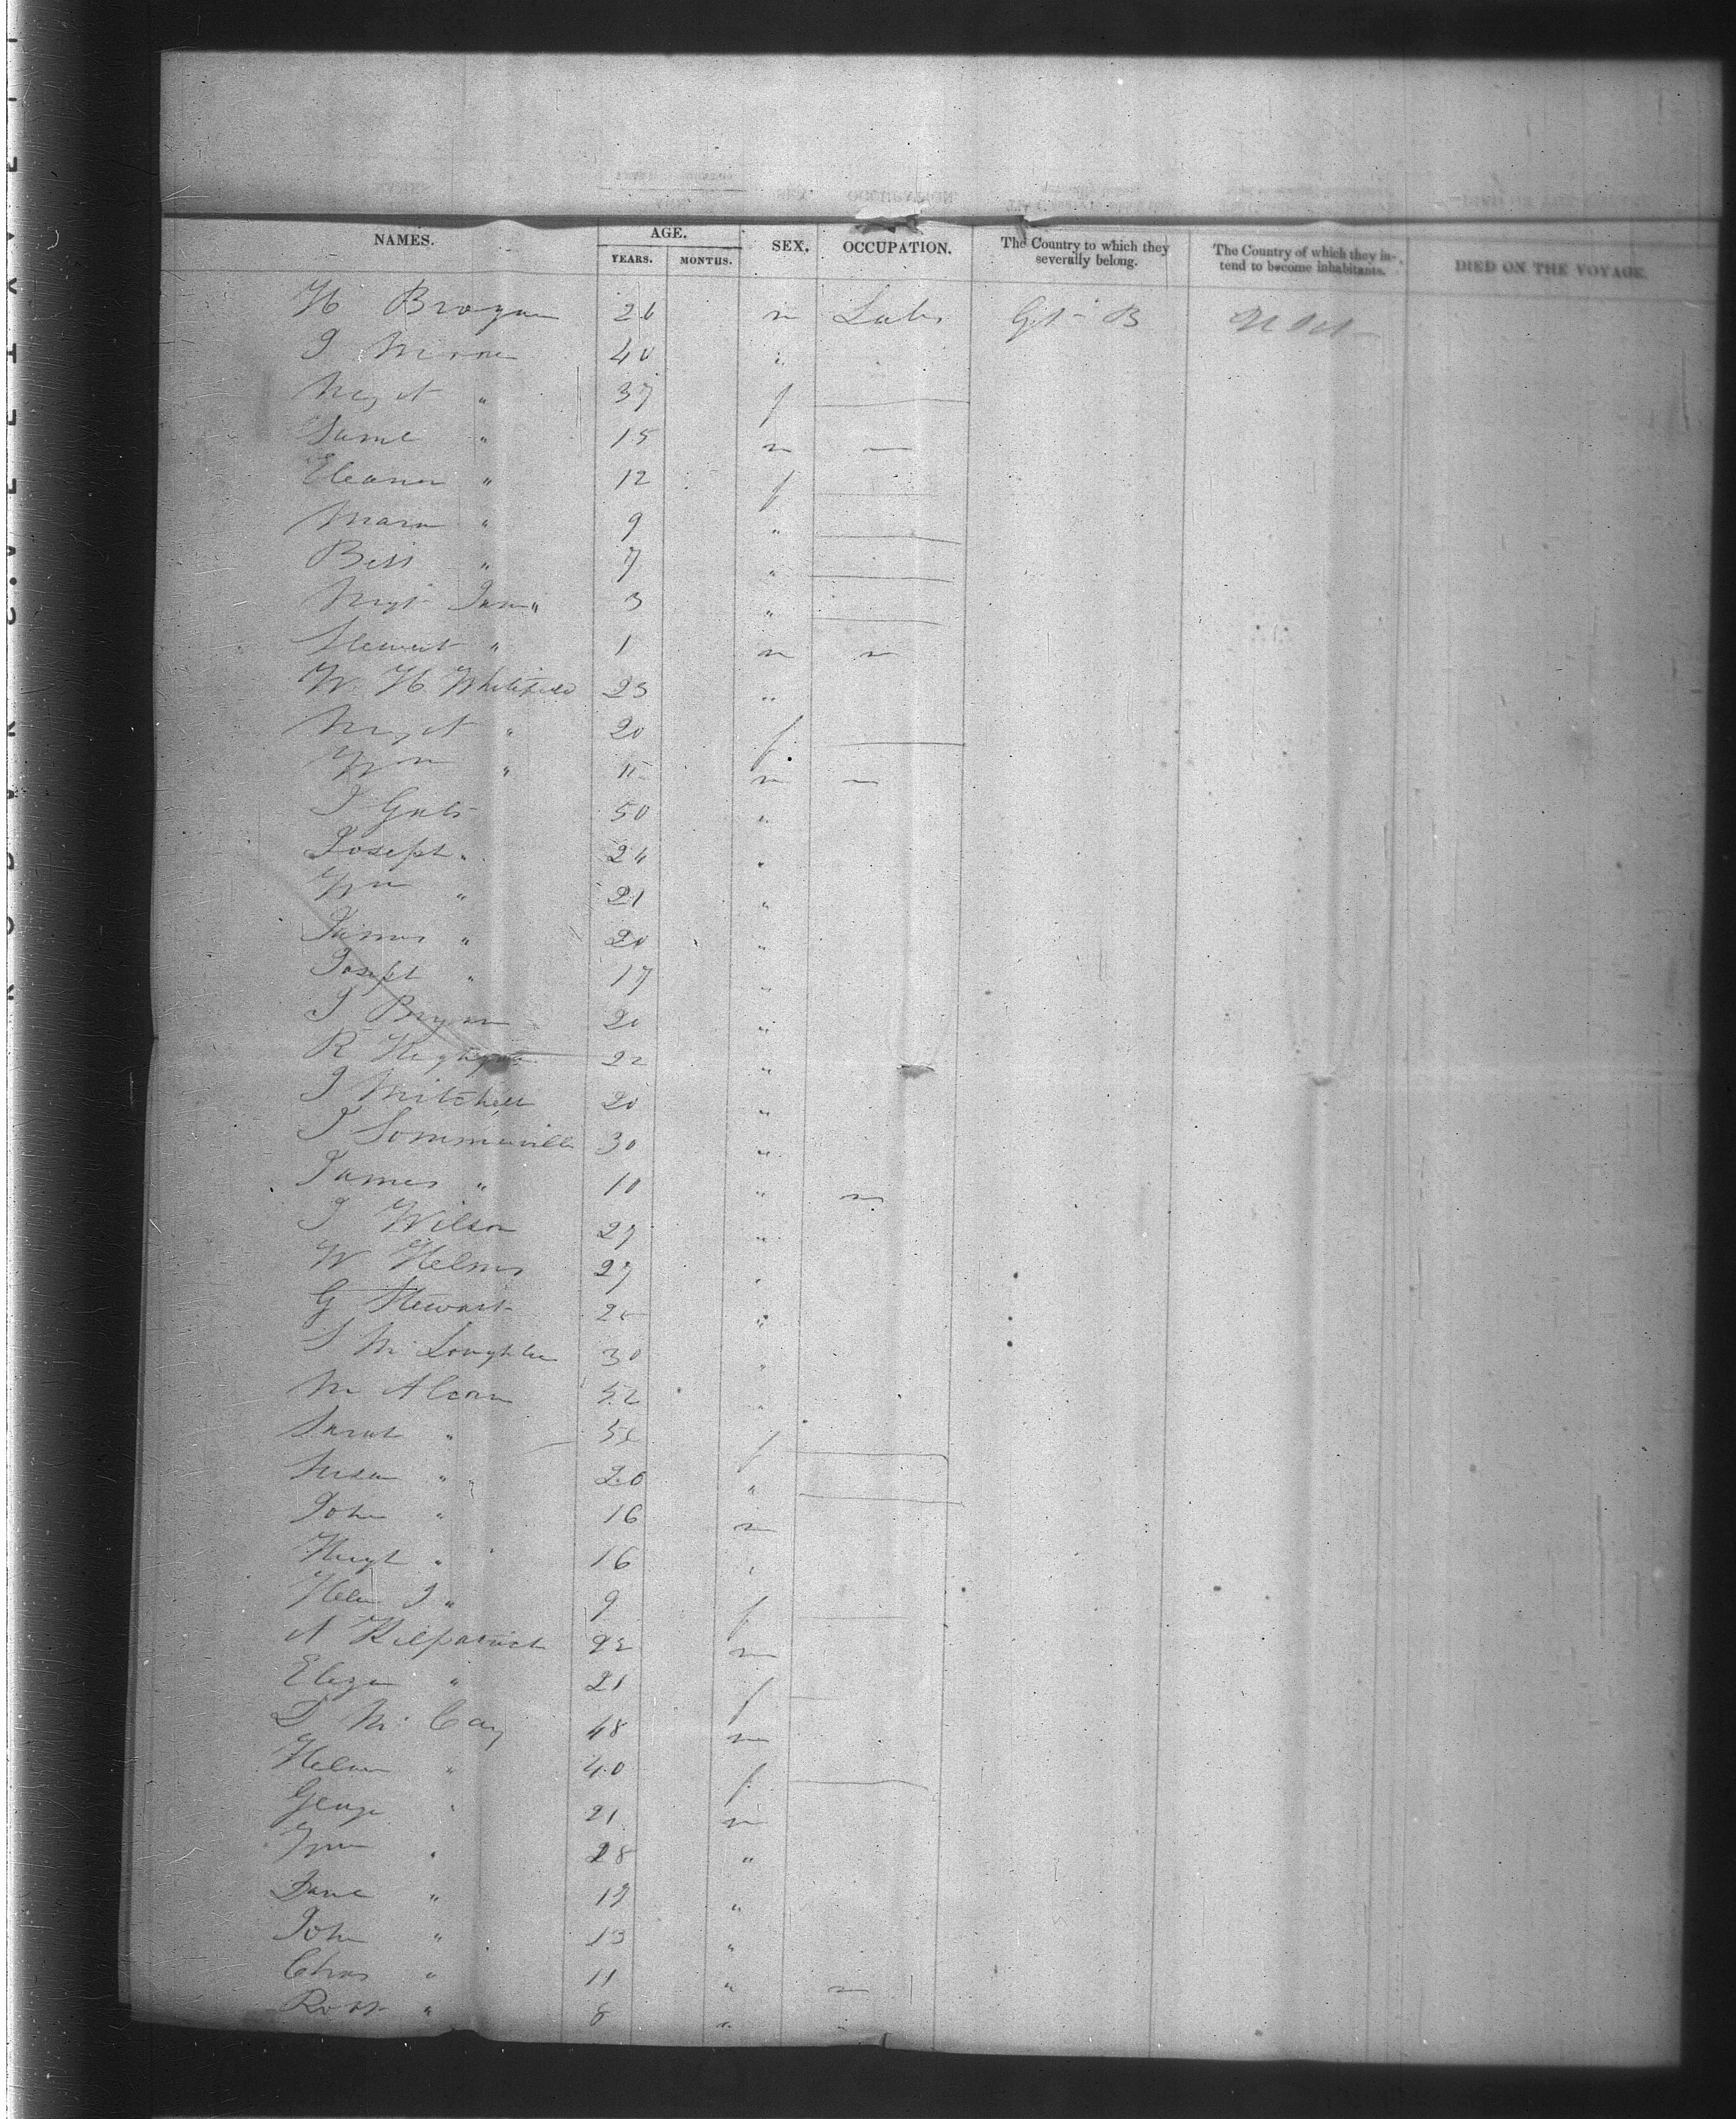 NAMES. AGE. YEARS. MONTHS. SEX. OCCUPATION. The Country to which they severally belong. The Country of which they intend to become inhabitants. DIED ON THE VOYAGE.
H Brogan 26 m Labr Gt B U St
J Moore 40 "
Mgt " 37 f
Jame " 15 m
Eleanor " 12 f
Maria " 9 "
Bess " 7 "
Mgt Jane " 3 "
Stewart " 1 m
W. H. Whitfield 23 "
Mgt " 20 f
Wm " m
J 50 "
Joseph " 24 "
Wm " 21 "
James " 20 "
Joseph " 17 "
J Bryan 20 "
R 22 "
J Mitchell 20 "
J Sommerville 30 "
James " 10 "
J Wilson 27 "
W Helms 27 "
G Stewart 25 "
J Mc Loughlin 30 "
M Alcorn 52 "
Sarah " f
Susan " 20 "
John " 16 m
Hugh " 16 "
Helen J " 9 f
A Kilpatrick 22 m
Eliza " 21 f
D Mc Cay 48 m
Helen " 40 f
George " 21 m
Wm " 28 "
Dave " 17 "
John " 13 "
Chas " 11 "
Robt " 8 "